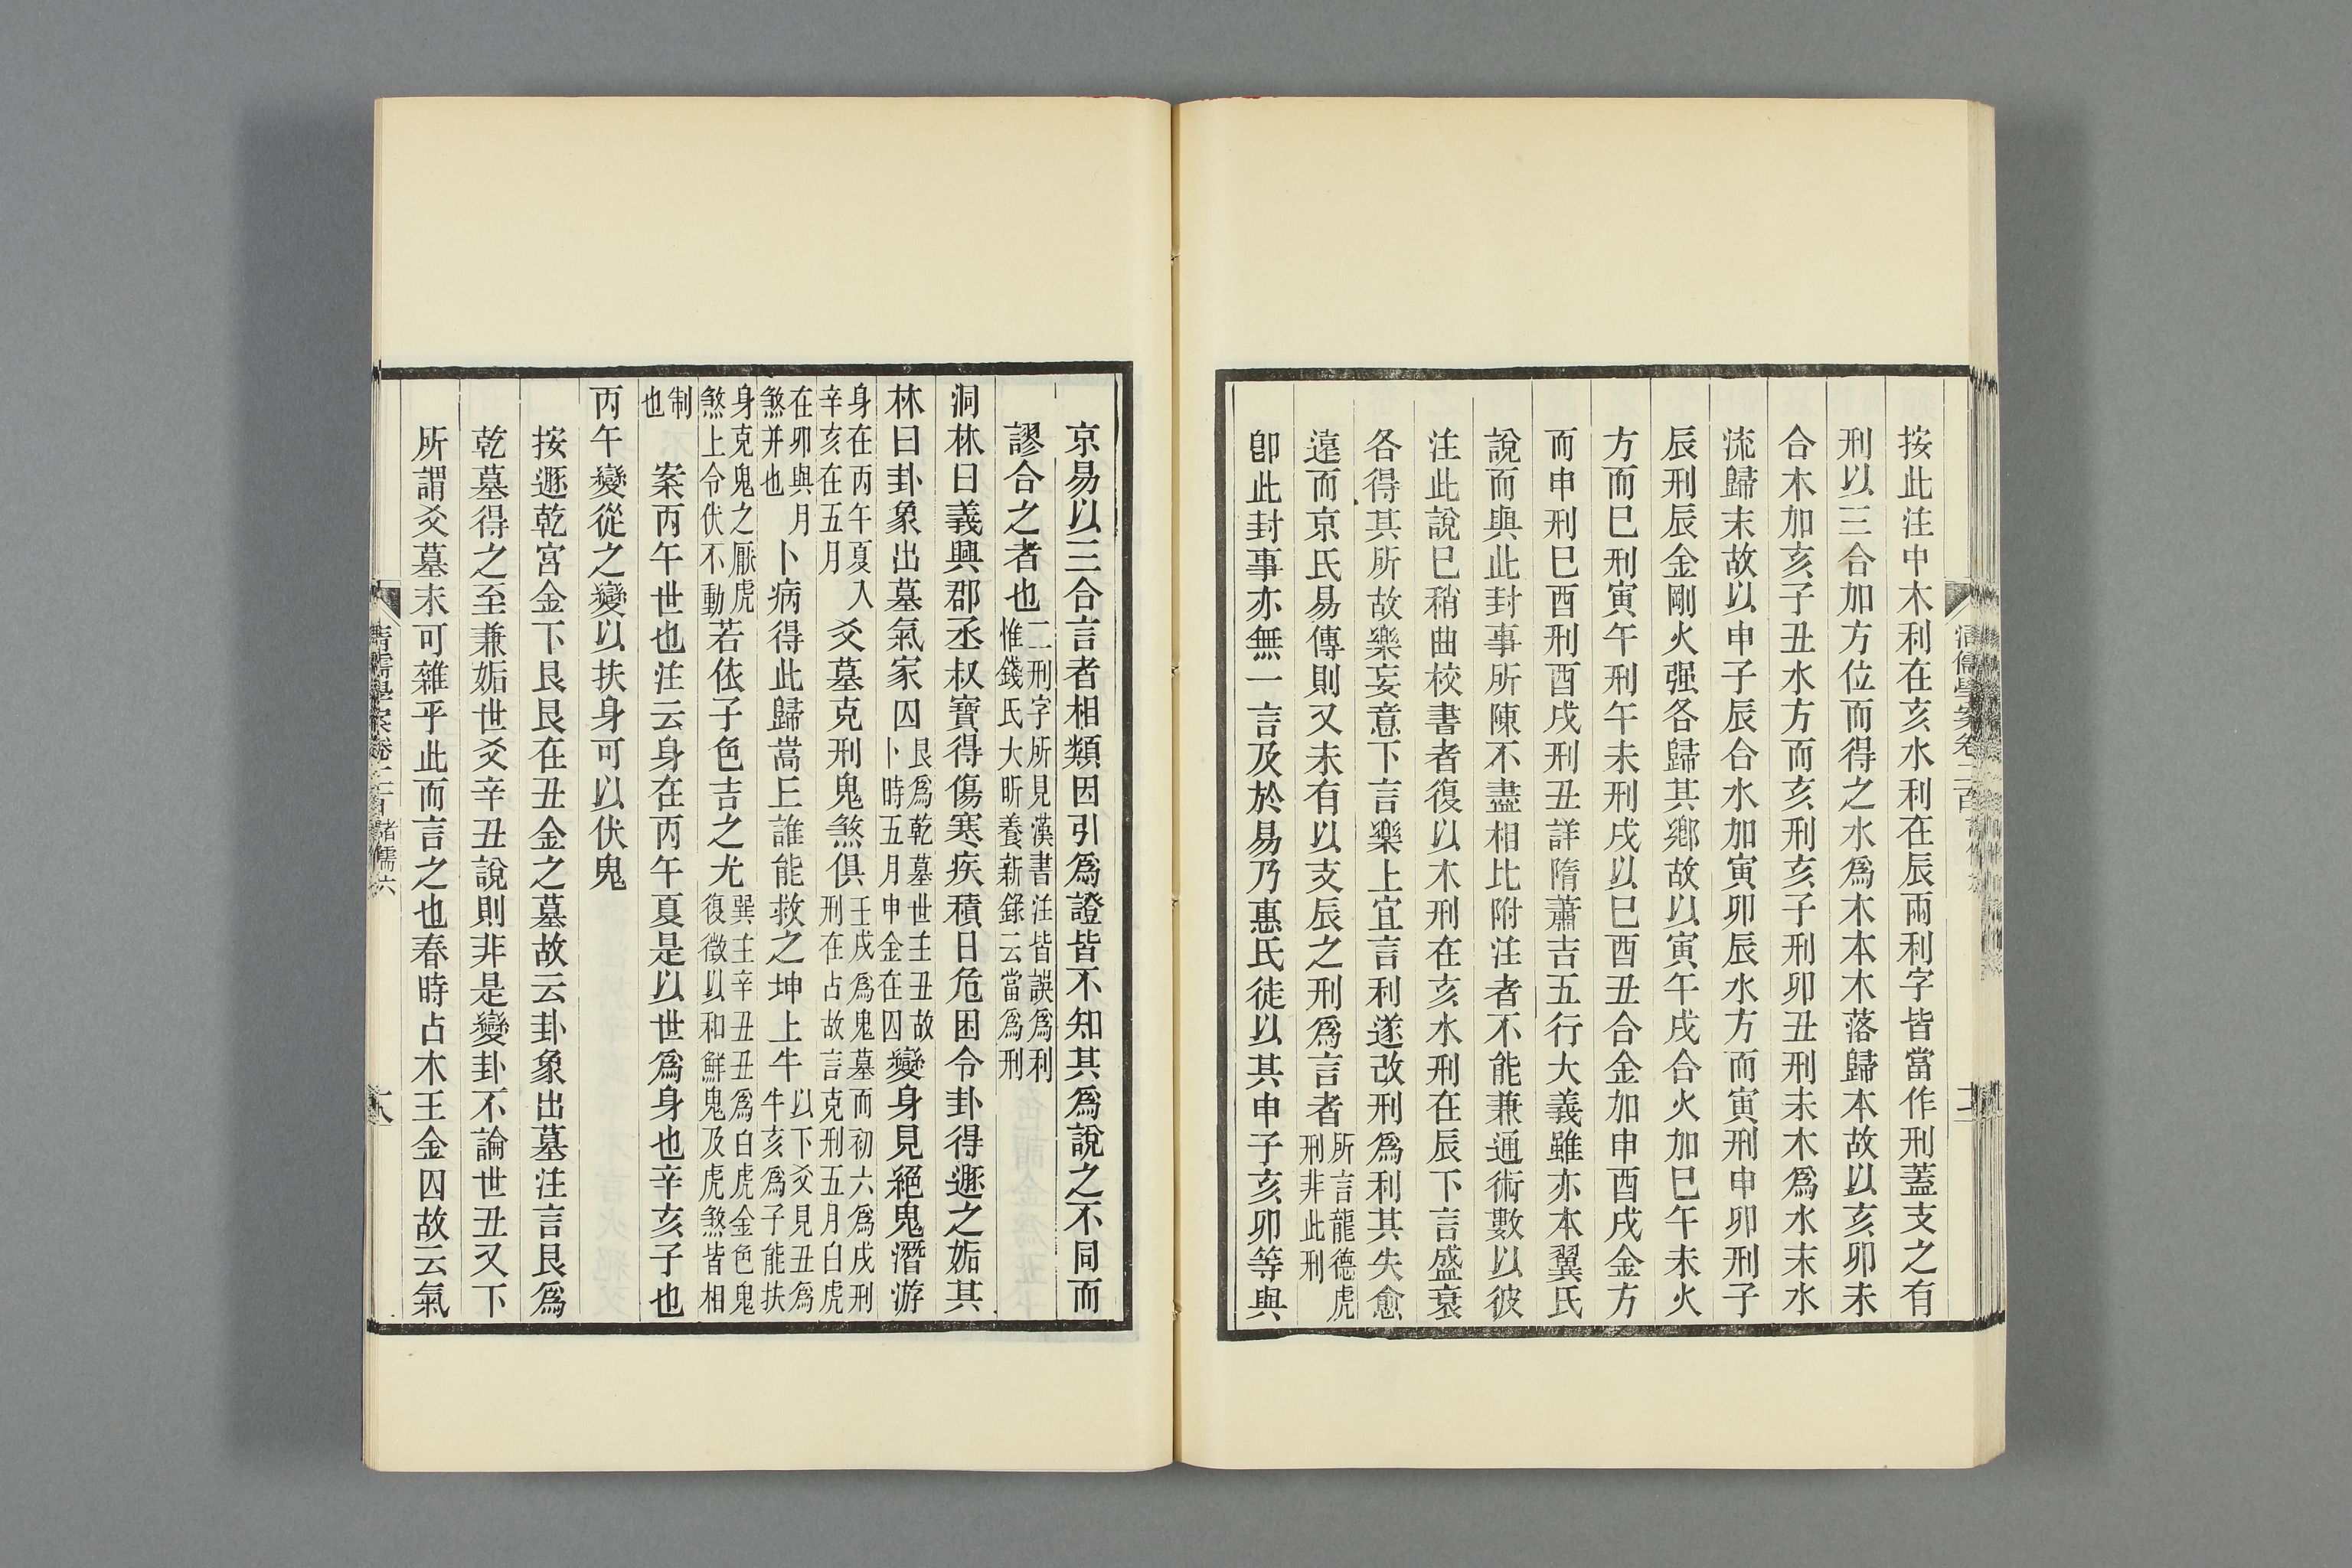 按此注中木利在亥水利在辰兩利字皆當作刑蓋支之有
刑以三合加方位而得之水爲木本木落歸本故以亥卯未
合木加亥子丑水方而亥刑亥子刑卯丑刑未木爲水末水
流歸末故以申子辰合水加寅卯辰水方而寅刑申卯刑子
辰刑辰金剛火强各歸其鄉故以寅午戌合火加巳午未火
方而巳刑寅午刑午未刑戌以巳酉丑合金加申酉戌金方
而申刑巳酉刑酉戌刑丑詳隋蕭吉五行大義雖亦本翼氏
說而與此封事所陳不盡相比附注者不能兼通術數以彼
注此說巳稍曲校書者復以木刑在亥水刑在辰下言盛衰
各得其所故樂妄意下言樂上宜言利遂改刑爲利其失愈
遠而京氏易傳則又未有以支辰之刑爲言者所言龍德虎刑非此刑
卽此封事亦無一言及於易乃惠氏徒以其申子亥卯等與
清儒學案卷二百
京易以三合言者相類因引爲證皆不知其爲說之不同而
謬合之者也二刑字所見漢書注皆誤爲利惟錢氏大昕養新錄云當爲刑
洞林曰義興郡丞叔寶得傷寒疾積日危困令卦得遯之姤其
林曰卦象出墓氣家囚艮爲乾墓世主丑故卜時五月申金在囚變身見絕鬼潛游
身在丙午夏入辛亥在五月爻墓克刑鬼煞俱壬戌爲鬼墓而初六爲戌刑刑在占故言克刑五月白虎
在卯與月煞并也卜病得此歸蒿丘誰能救之坤上牛以下爻見丑爲牛亥爲子能扶
身克鬼之厭虎煞上令伏不動若依子色吉之尤巽主辛丑丑爲白虎金色鬼復徵以和鮮鬼及虎煞皆相
制也案丙午世也注云身在丙午夏是以世爲身也辛亥子也
丙午變從之變以扶身可以伏鬼
按遯乾宮金下艮艮在丑金之墓故云卦象出墓注言艮爲
乾墓得之至兼姤世爻辛丑說則非是變卦不論世丑又下
所謂爻墓未可雜乎此而言之也春時占木王金囚故云氣
清儒學案卷二百 諸儒六